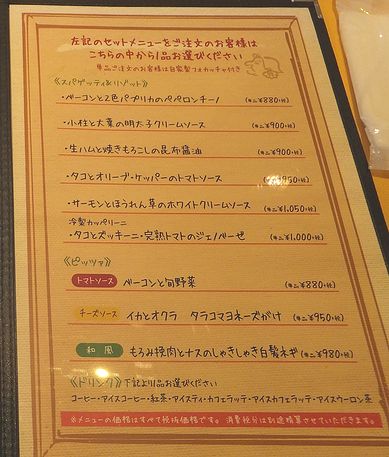 左記のセットメニューをご注文のお客様は
こちらの中から1品お選びください
単品ご注文のお客様は自家製フォカッチャ付き
《スパゲッティ&リゾット》
・ベーコンと2色パプリカのペペロンチーノ (単品¥880+税)
・小柱と大葉の明太子クリームソース (単品¥900+税)
・生ハムと焼きもろこしの昆布醤油 (単品¥900+税)
・タコとオリーブ・ケッパーのトマトソース 950+税)
・サーモンとほうれん草のホワイトクリームソース (単品¥1,050+税)
冷製カッペリーニ
・タコとズッキーニ・完熟トマトのジェノベーゼ (単品¥1,000+税)
《ピッツァ》
トマトソース ベーコンと旬野菜 (単品¥880+税)
チーズソース イカとオクラ タラコマヨネーズがけ (単品¥950+税)
和風 もろみ挽肉とナスのしゃきしゃき白髪ネギ (単品¥980+税)
《ドリンク》下記より1品お選びください
コーヒー・アイスコーヒー・紅茶・アイスティ・カフェラッテ・アイスカフェラッテ・アイスウーロン茶
※メニューの価格はすべて税抜価格です。消費税分は別途精算させていただきます。